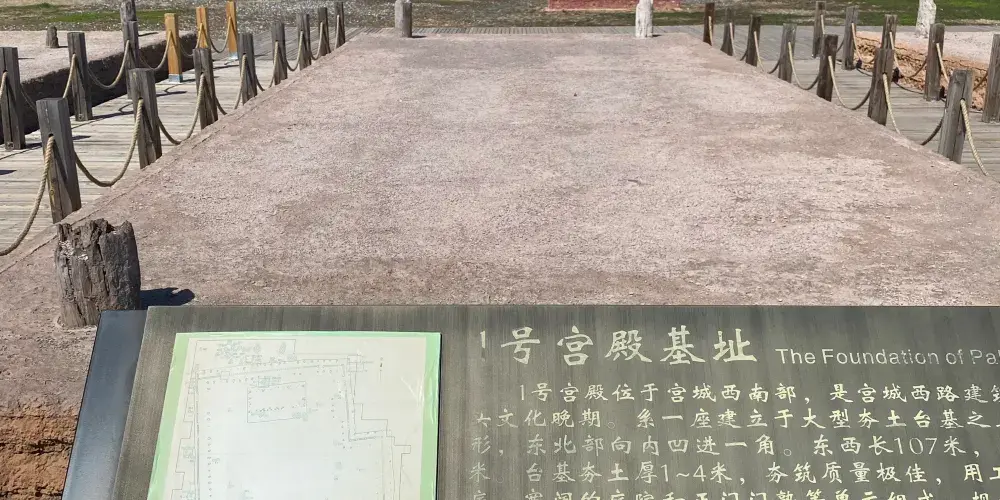 1号宫殿基址 The Foundation of Pal
1号宫殿位于宫城西南部，是宫城西路建筑
文化晚期。系一座建立于大型夯土台基之上
形，东北部向内凹进一角。东西长107米，
米。台基夯土厚1~4米，夯筑质量极佳，用工